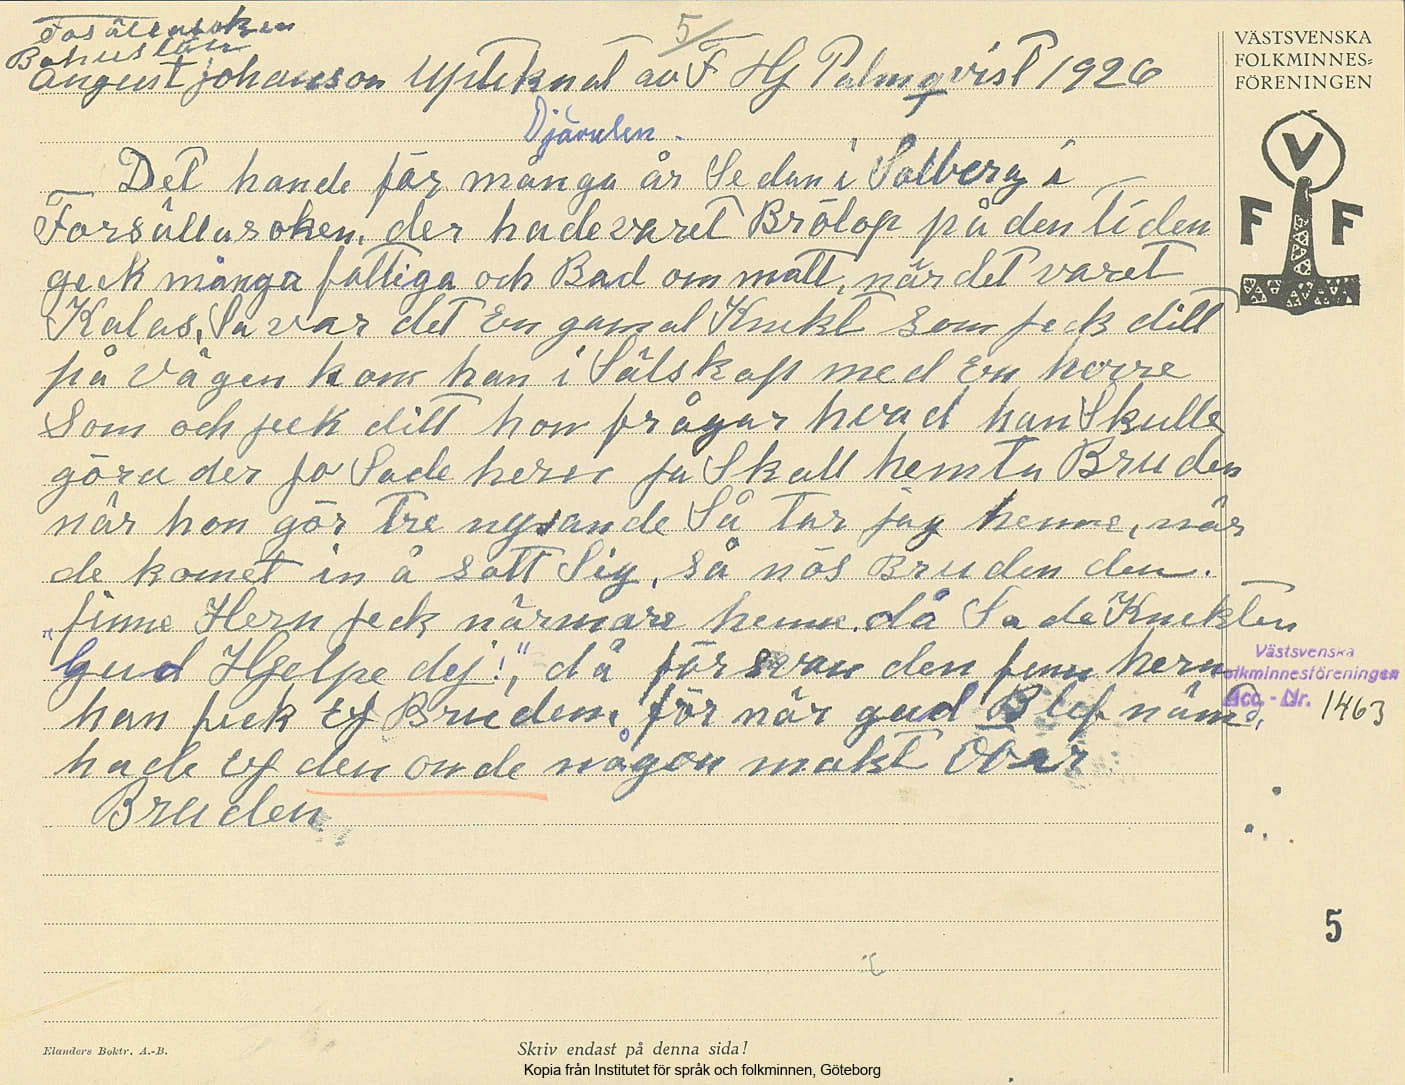 Forsällasoken
Bohuslän
5/
August johanson Upteknat av F Hj Palmqvist 1926
Djävulen.
Det hande för många år Sedan i Solberg i
Forsällasoken, der hade varet Brölop på den tiden
geck många fattiga och Bad om matt, när det varet
Kalas, Så var det En gamal Knekt som jeck ditt
på Vägen kom han i Sälskap med En herre
Som och jeck ditt hon frågar hvad han Skulle
göra der jo Sade heren ja Skall hemta Bruden
när hon gör tre nysande Så tar jag henne, når
de komet in å satt Sig, så nös Bruden den.
finne Hern jeck närmare henne. då Sade Knekten
„Gud Hjelpe dej!", då försvan den finn hern
han feck Ej Bruden, för när gud Blef nämd,
hade Ej den onde någon makt Över
Bruden
VÄSTSVENSKA
FOLKMINNES=
FÖRENINGEN
V
F F
Västsvenska
Folkminnesföreningen
Acc. - Nr. 1463
5
Elanders Boktr. A.-B.
Skriv endast på denna sida!
Kopia från Institutet för språk och folkminnen, Göteborg